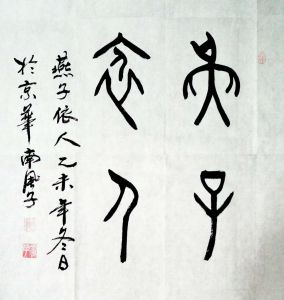 燕子
依人
燕子依人乙未年冬日
於京華南風子